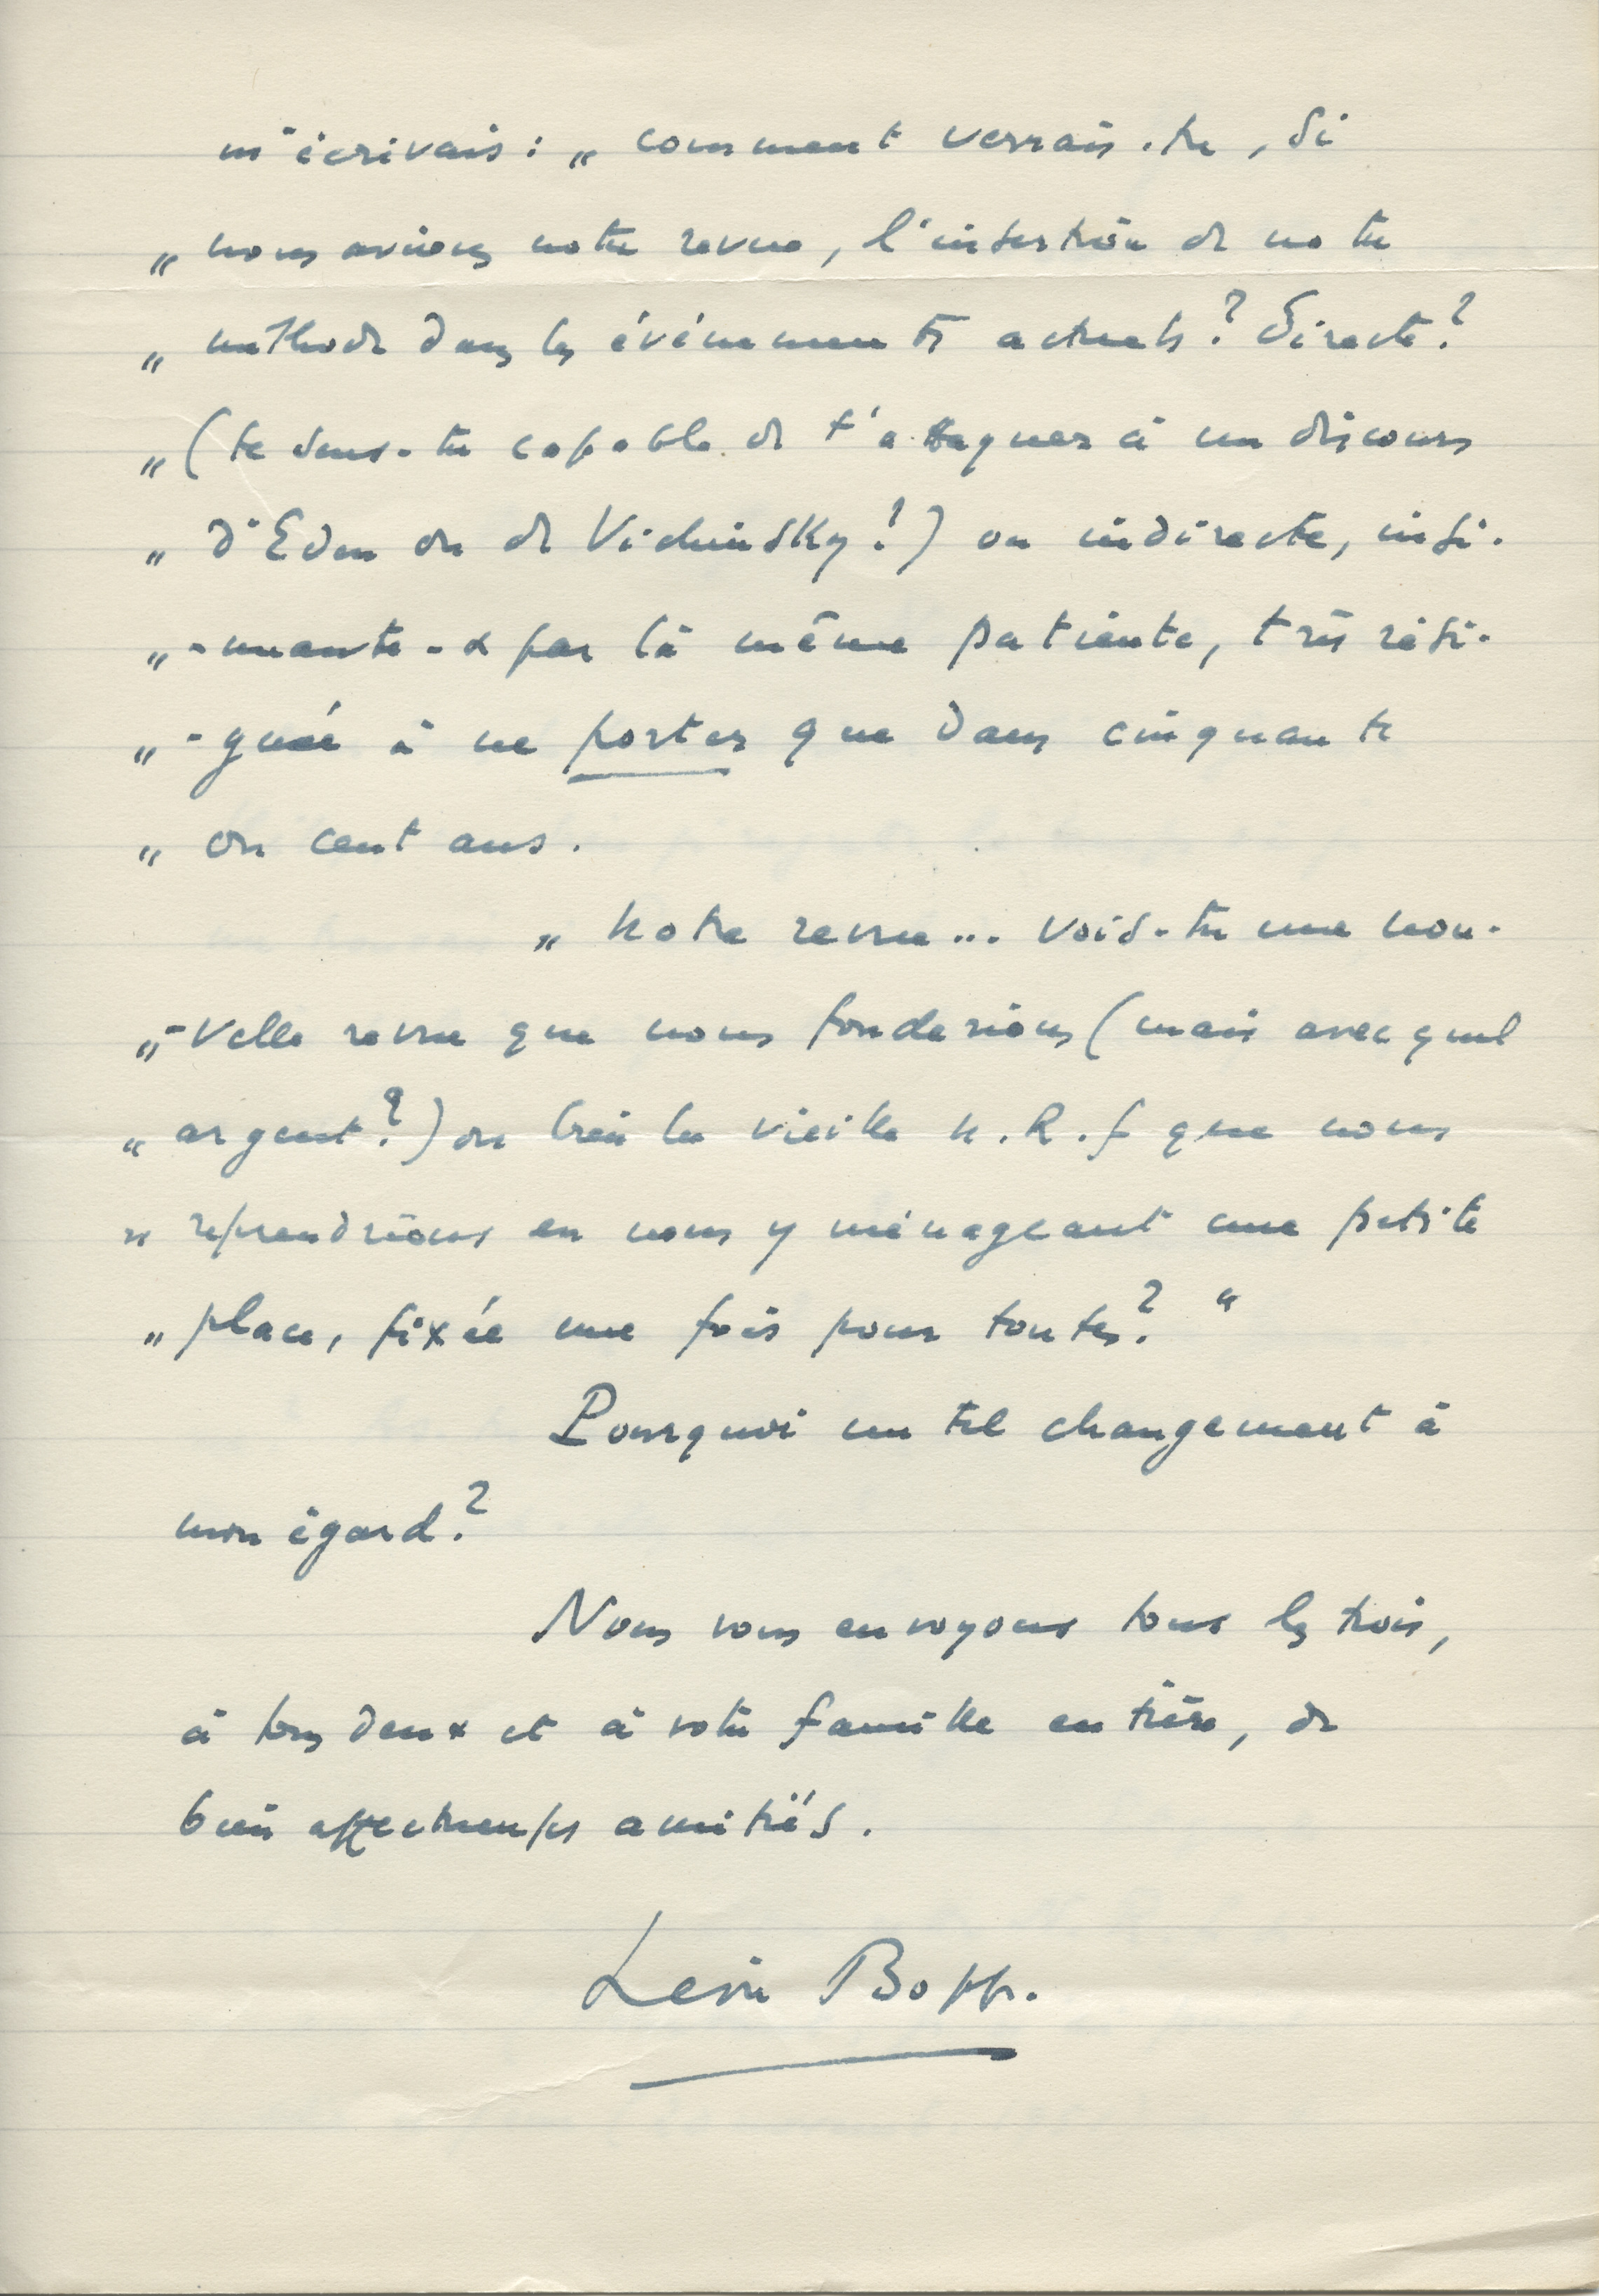 m'écrivais : „ comment verrais-tu, si
„ nous avions notre revue, l'insertion de notre
„ méthode dans les événements actuels ? Directe ?
„ (te sens-tu capable de t'attaquer à un discours
„ d'Eden ou de Vichinsky ?) ou indirecte, insi-
„ -nuante - & par là même patiente, très rési-
„ -gnée à ne porter que dans cinquante
„ ou cent ans.
„ Notre revue... vois-tu une nou-
„ -velle revue que nous fonderions (mais avec quel
„ argent ?) ou bien la vieille N.R.f que nous
„ reprendrions en nous y ménageant une petite
„ place, fixée une fois pour toutes ? “
Pourquoi un tel changement à
mon égard ?
Nous vous envoyons tous les trois,
à tous deux et à votre famille entière, de
bien affectueuses amitiés.
Léon Bopp.